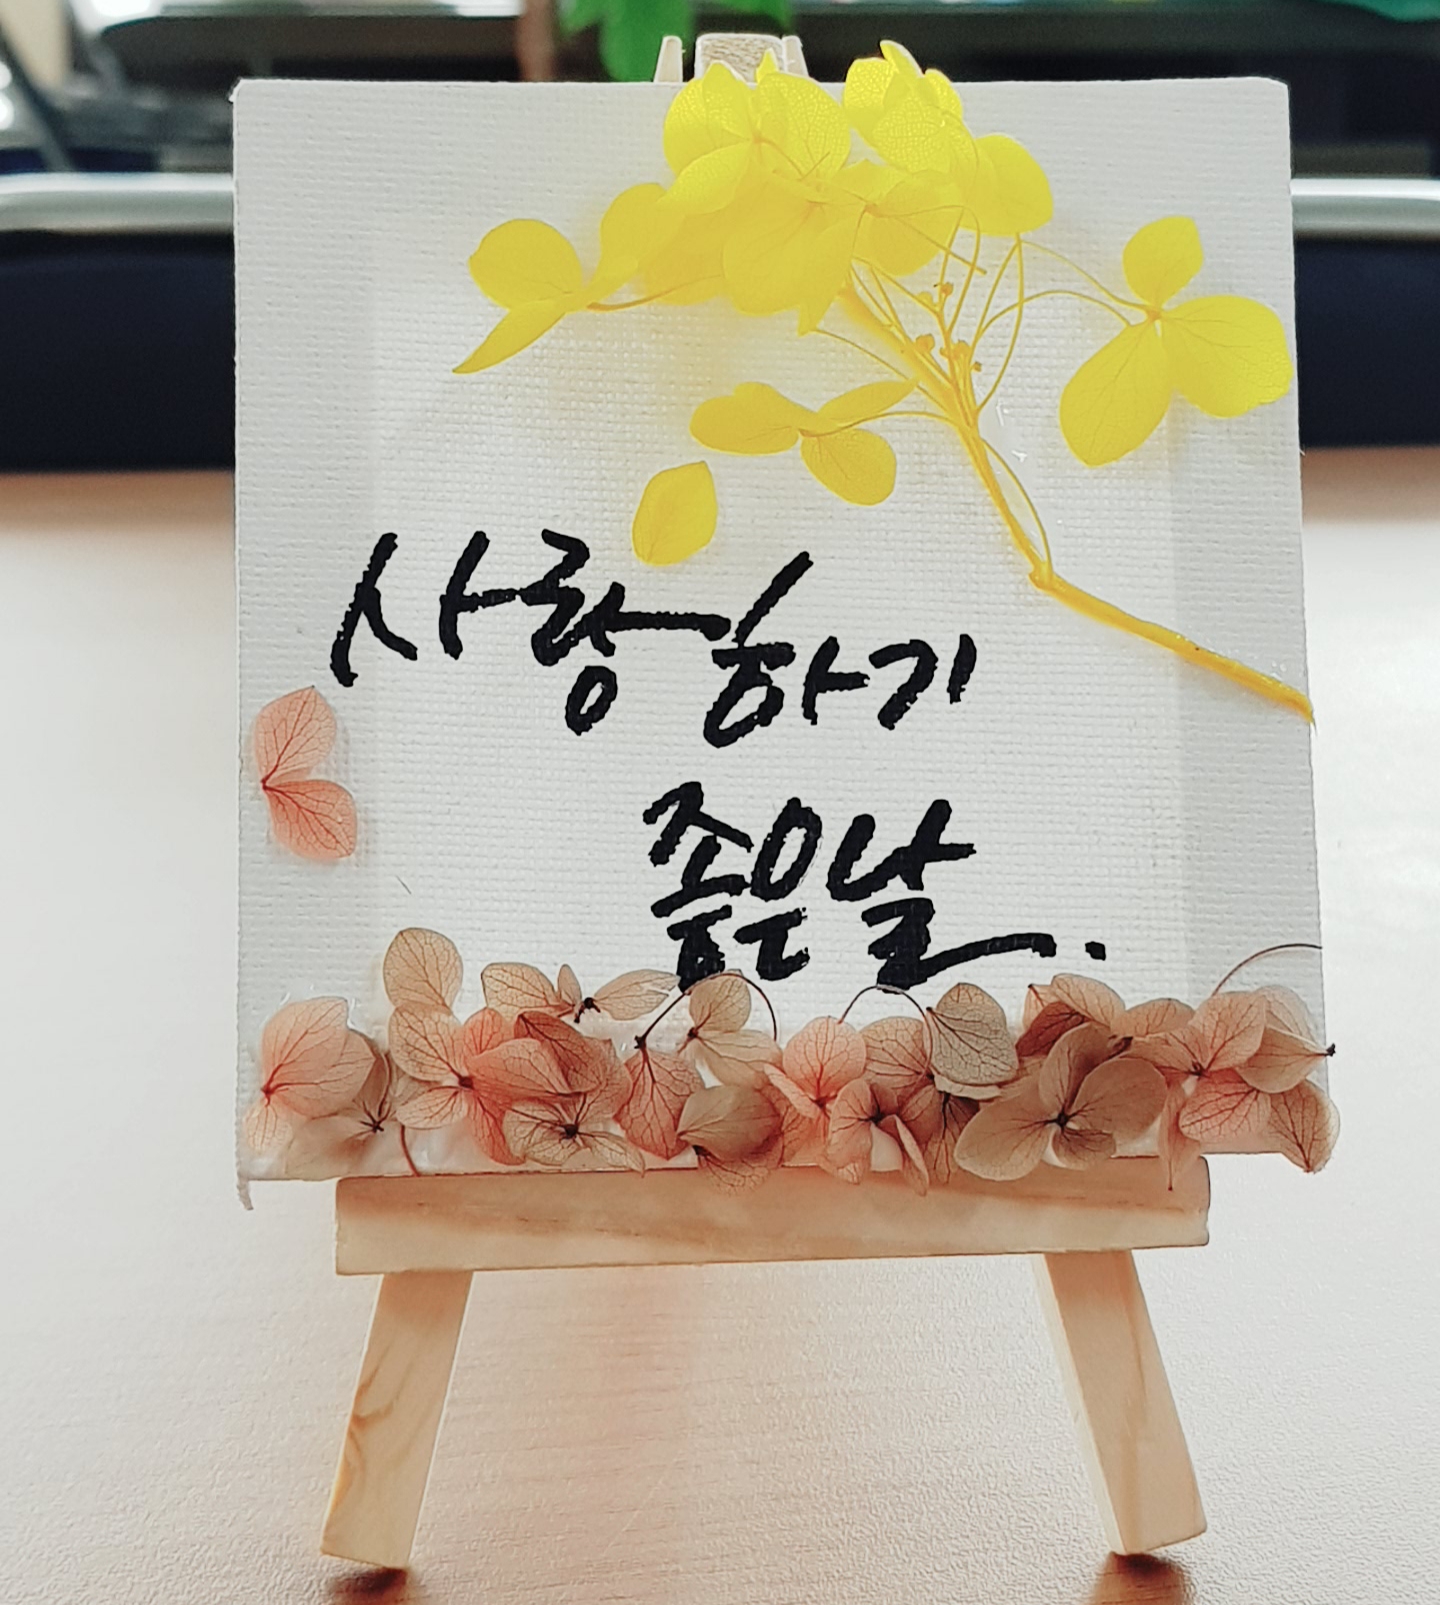 사랑하기
좋은날.